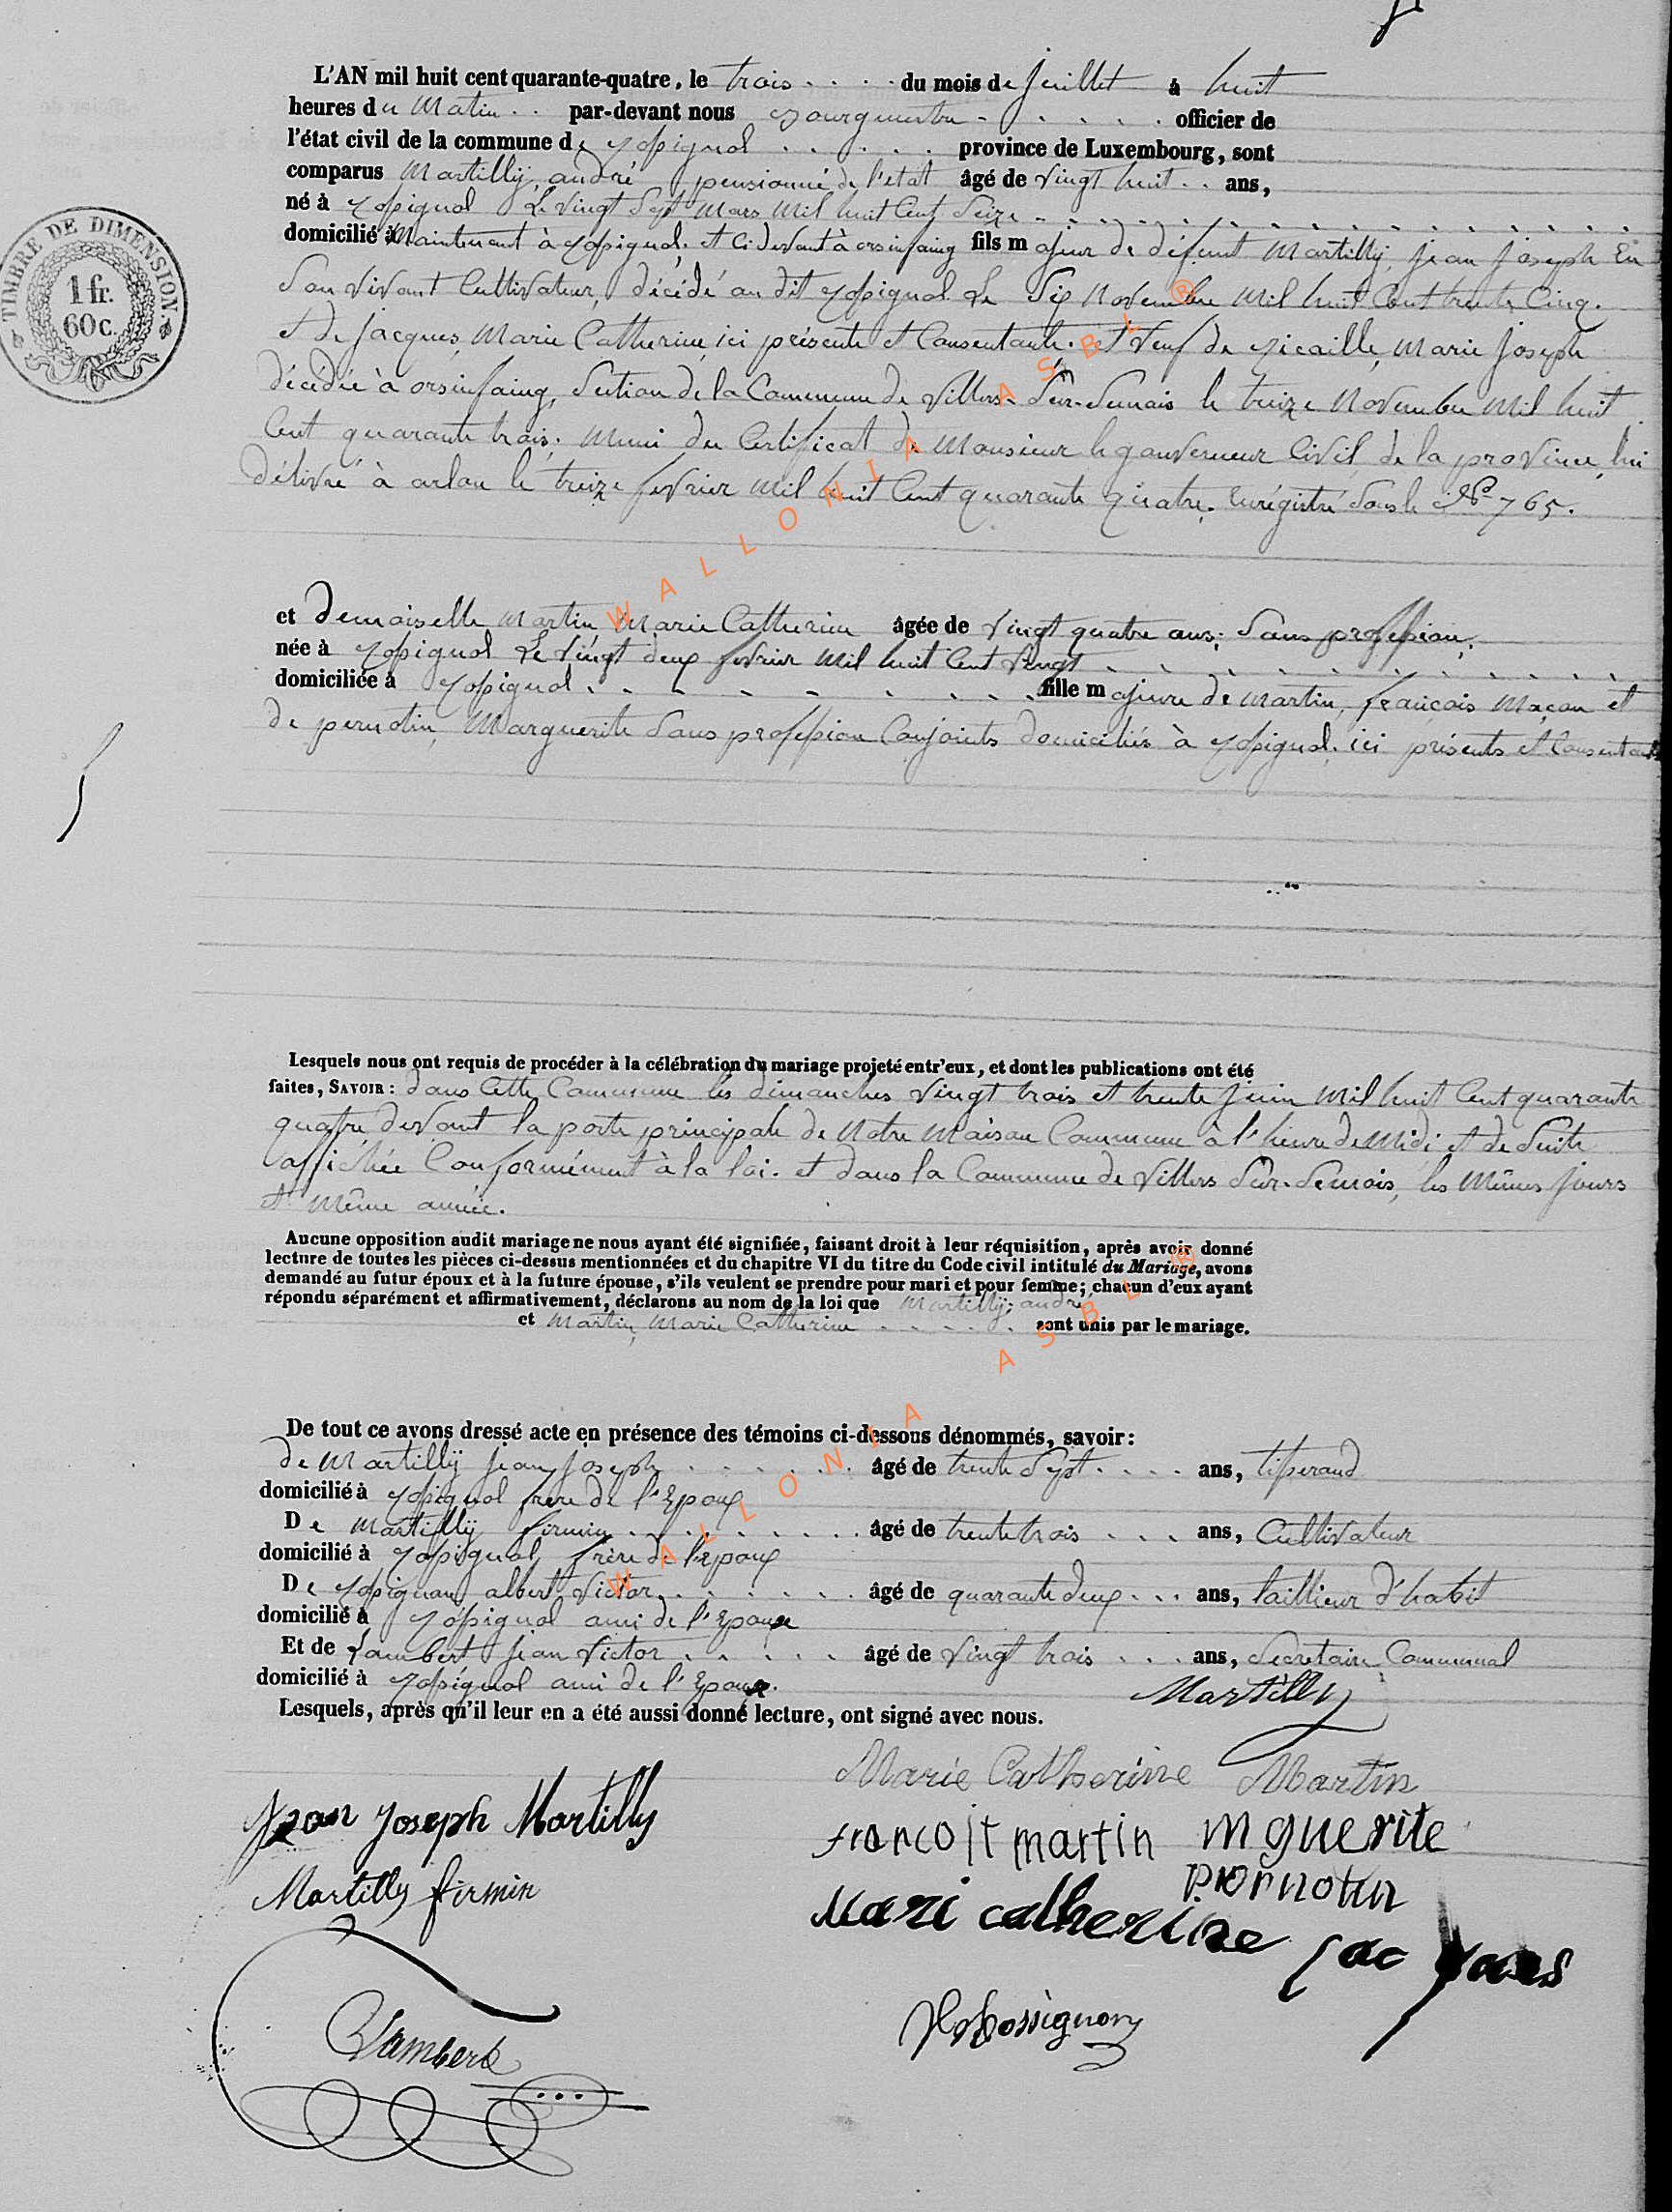 L'AN mil huit cent quarante-quatre, le trois du mois de juillet à huit
heures du Matin par-devant nous Bourgmestre officier de
l'état civil de la commune de Rossignol province de Luxembourg, sont
comparus Martilly, andré pensionné de l'etat âgé de vingt huit ans,
né à Rossignol Le vingt Sept Mars Mil huit Cent Seize
domicilié à Maintenant à Rossignol, et Ci devant à orsinfaing fils majeur de défunt Martilly, jean joseph En
Son vivant Cultivateur, décédé au dit Rossignol Le Six Novembre Mil huit Cent trente Cinq.
et de jacques, Marie Catherine, ici présente et Consentante. et veuf de Nicaille, Marie joseph
décédée à orsinfaing, Section de la Commune de Villers-Sur-Semois le treize Novembre Mil huit
Cent quarante trois. Muni du Certificat de Monsieur le gouverneur Civil de la province, lui
délivré à arlon le treize fevrier Mil huit Cent quarante quatre. Enrégistré Sous le N° 765.
et Demoiselle Martin Marie Catherine âgée de vingt quatre ans, Sans profession,
née à Rossignol Le vingt deux fevrier Mil huit Cent vingt
domiciliée à Rossignol fille majeure de Martin, françois Maçon et
de pernotin, Marguerite Sans profession Conjoints domiciliés à Rossignol. ici présents et Consentants
Lesquels nous ont requis de procéder à la célébration du mariage projeté entr'eux, et dont les publications ont été
faites, SAVOIR : dans Cette Commune les dimanches vingt trois et trente juin Mil huit Cent quarante
quatre devant la porte principale de Notre Maison Commune à l'heure de Midi et de Suite
affichée Conformément à la loi. et dans la Commune de Villers Sur-Semois, les Mêmes jours
et Même année.
Aucune opposition audit mariage ne nous ayant été signifiée, faisant droit à leur réquisition, après avoir donné
lecture de toutes les pièces ci-dessus mentionnées et du chapitre VI du titre du Code civil intitulé du Mariage, avons
demandé au futur époux et à la future épouse, s'ils veulent se prendre pour mari et pour femme; chacun d'eux ayant
répondu séparément et affirmativement, déclarons au nom de la loi que Martilly, andré
et Martin, Marie Catherine sont unis par le mariage.
De tout ce avons dressé acte en présence des témoins ci-dessous dénommés, savoir:
de Martilly jean joseph âgé de trente Sept ans, tisserand
domicilié à Rossignol frère de l'Epoux
De Martilly firmin âgé de trente trois ans, Cultivateur
domicilié à Rossignol frère de l'Epoux
De Rossignon, albert Victor âgé de quarante deux ans, taillieur d'habit
domicilié à Rossignol ami de l'Epoux
Et de Lambert jean Victor âgé de vingt trois ans, Secretaire Communal
domicilié à Rossignol ami de l'Epoux.
Lesquels, après qu'il leur en a été aussi donné lecture, ont signé avec nous.
Martilly
Marie Catherine Martin
Jean Joseph Martilly
francoit martin mguerite
pernotin
Martilly firmin
Mari catherine jacques
Rossignon
Lambert
TIMBRE DE DIMENSION.
1 fr.
60 c.
WALLONIA ASBL ®
WALLONIA ASBL ®